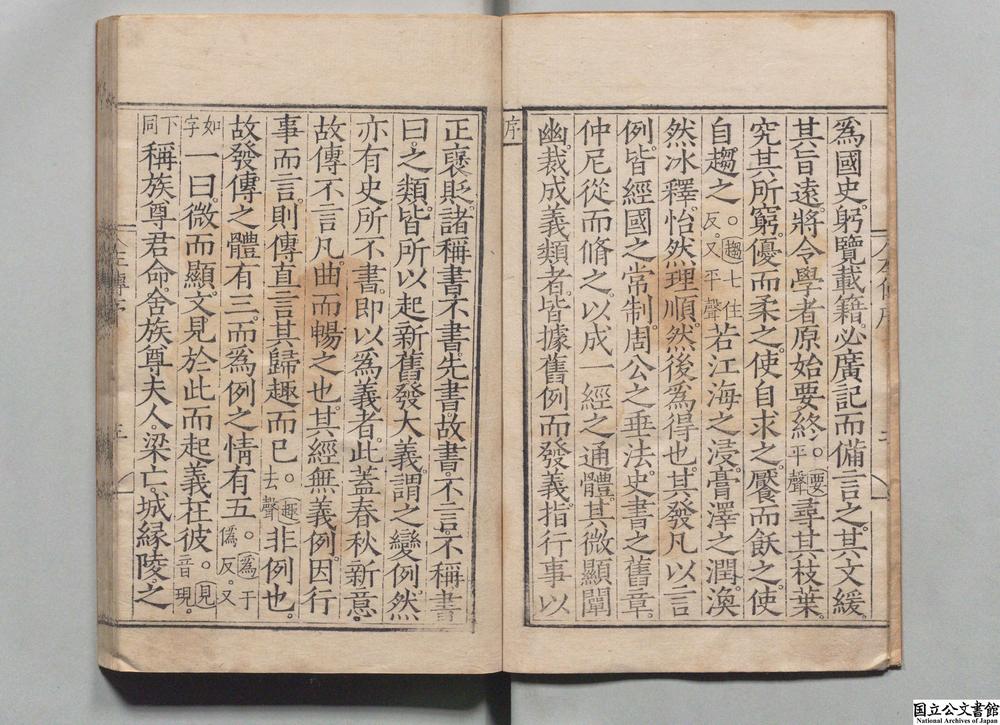 爲國史。躬覽載籍。必廣記而備言之。其文緩。
其旨遠。將令學者原始要終。○要平聲尋其枝葉。
究其所窮。優而柔之。使自求之。饜而飫之。使
自趨之。○趨七住反。又平聲若江海之浸。膏澤之潤。渙
然冰釋。怡然理順。然後爲得也。其發凡以言
例。皆經國之常制。周公之垂法。史書之舊章。
仲尼從而脩之。以成一經之通體。其微顯闡
幽。裁成義類者。皆據舊例而發義。指行事以
序
正褒貶。諸稱書。不書。先書。故書。不言。不稱。書
曰之類。皆所以起新舊。發大義。謂之變例。然
亦有史所不書。即以爲義者。此蓋春秋新意。
故傳不言凡。曲而暢之也。其經無義例。因行
事而言。則傳直言其歸趣而已。○趣去聲非例也。
故發傳之體有三。而爲例之情有五。○爲于僞反。又
如字下同一曰。微而顯。文見於此。而起義在彼。○見音現。
稱族尊君命。舍族尊夫人。梁亡。城緣陵之
国立公文書館
National Archives of Japan